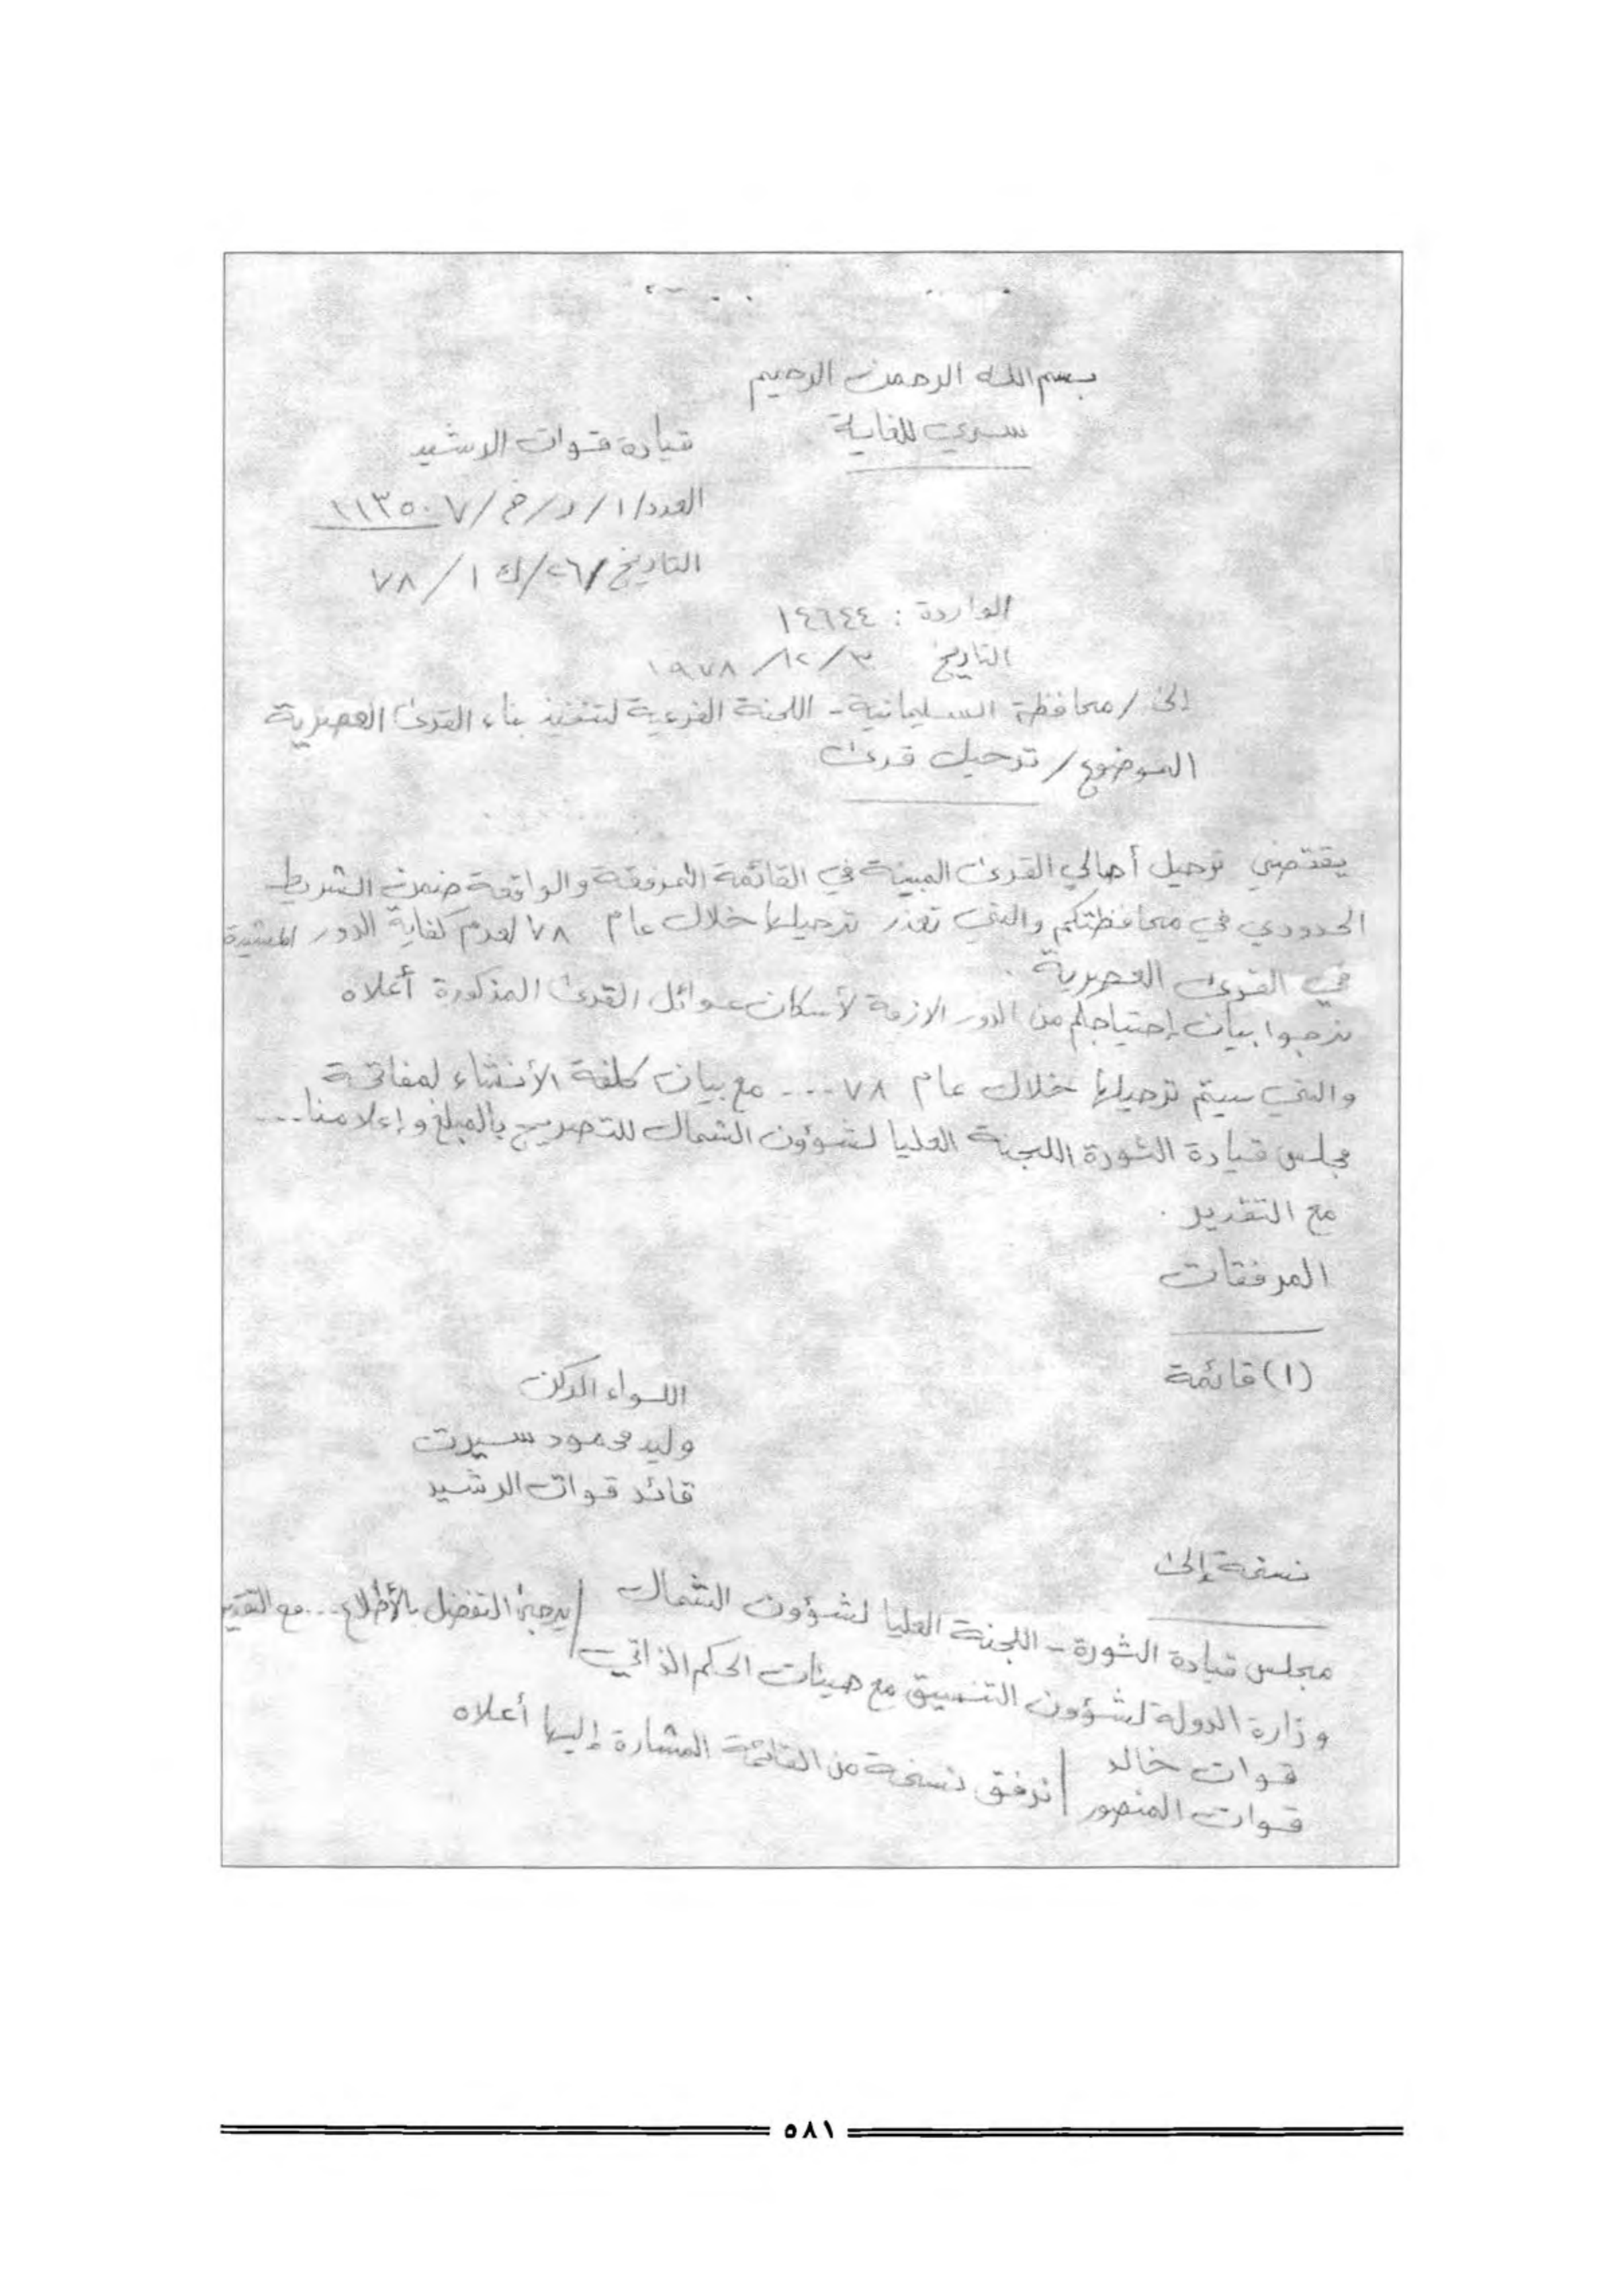 بسم الله الرحمن الرحيم
سري للغاية
قيادة قوات الرشيد
العدد/١/ر/خ/١١٣٥٠٧
التاريخ/٢٦/ك١/٧٨
الواردة : ١٤٦٤٤
التاريخ ٣/١٢/١٩٧٨
إلى/محافظة السليمانية - اللجنة الفرعية لتنفيذ بناء القرى العصرية
الموضوع/ترحيل قرى
يقتضي ترحيل أهالي القرى المبينة في القائمة المرفقة والواقعة ضمن الشريط
الحدودي في محافظتكم والتي تعذر ترحيلها خلال عام ٧٨ لعدم كفاية الدور المشيدة
في القرى العصرية .
نرجوا بيان إحتياجكم من الدور الازمة لأسكان عوائل القرى المذكورة أعلاه
والتي سيتم ترحيلها خلال عام ٧٨ ... مع بيان كلفة الأنشاء لمفاتحة
مجلس قيادة الثورة اللجنة العليا لشوؤن الشمال للتصريح بالمبلغ وإعلامنا...
مع التقدير .
المرفقات
(١) قائمة
اللواء الركن
وليد محمود سيرت
قائد قوات الرشيد
نسخة إلى
مجلس قيادة الثورة - اللجنة العليا لشؤون الشمال / يرجى التفضل بالأطلاع...مع التقدير
وزارة الدولة لشؤون التنسيق مع هيئات الحكم الذاتي
قوات خالد / نرفق نسخة من القائمة المشارة إليها أعلاه
قوات المنصور
٥٨١